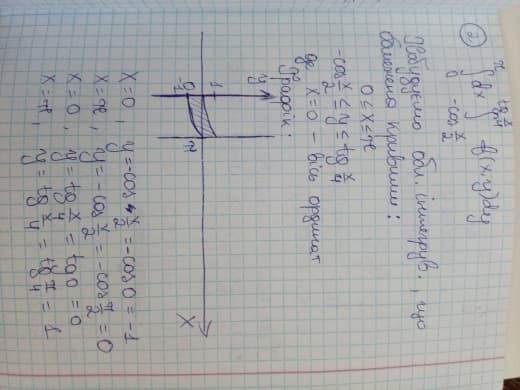 2) ∫₀^π dx ∫_{-cos x/2}^{tg x/4} f(x,y)dy
Побудуємо обл. інтегрув., що
обмежена кривими:
0 ≤ x ≤ π
-cos x/2 ≤ y ≤ tg x/4
де x=0 – вісь ординат
Графік:
y
1
0
-1
π
X
X=0, y=-cos x/2 = -cos 0 = -1
X=π, y=-cos x/2 = -cos π/2 = 0
X=0, y=tg x/4 = tg 0 = 0
X=π, y=tg x/4 = tg π/4 = 1